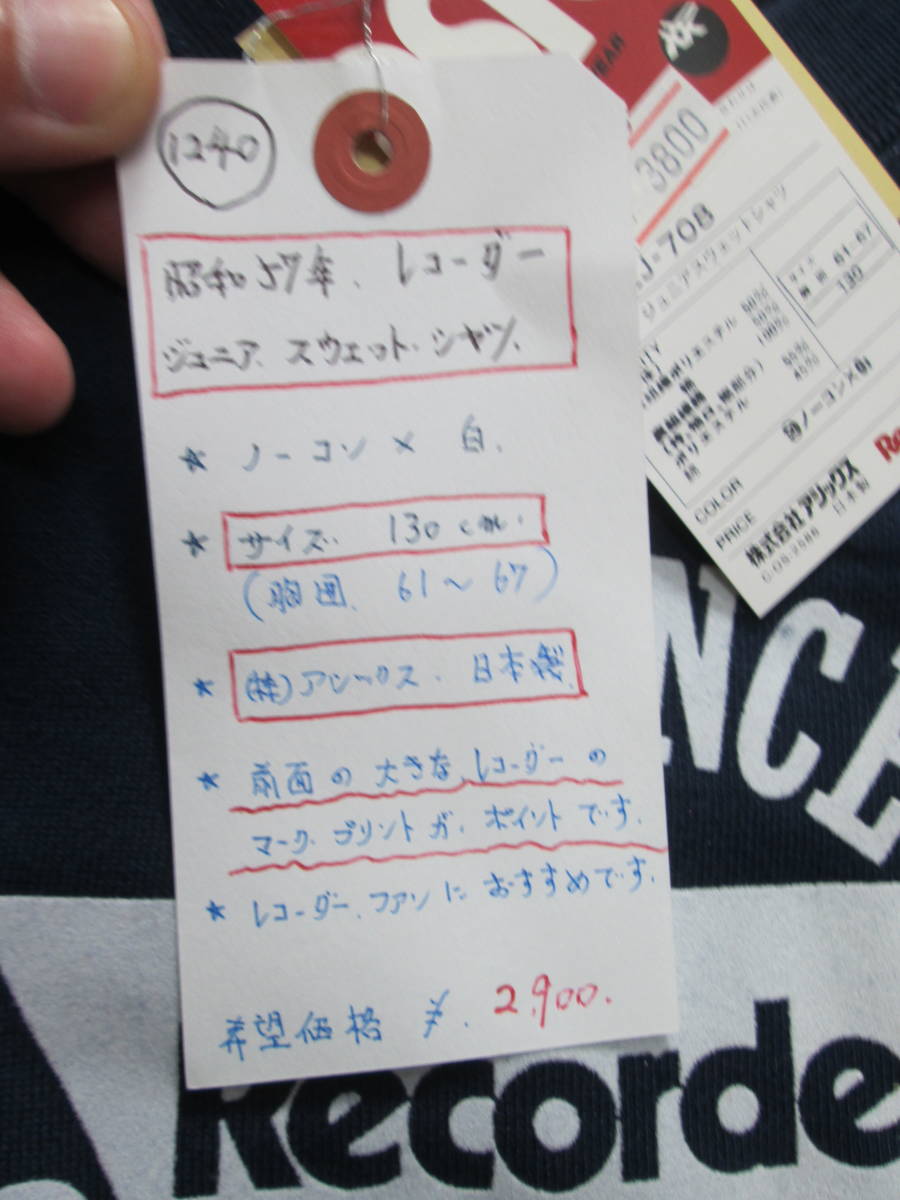 1240
昭和57年. レコーダー
ジュニア. スウェット・シャツ.
★ ノーコン × 白.
★ サイズ. 130cm.
(胸囲. 61～67)
★ (株)アシックス. 日本製.
★ 前面の大きなレコーダーの
マーク.プリントが.ポイントです.
★ レコーダー.ファンにおすすめです.
希望価格 ¥. 2,900.
EAR
3800
J-708
ジュニアスウェットシャツ
サイズ
胸囲 61-67
130
50%
50%
100%
ポリエステル 55%
綿 45%
COLOR
PRICE
株式会社アシックス
日本製
Re
NCE
Recorde